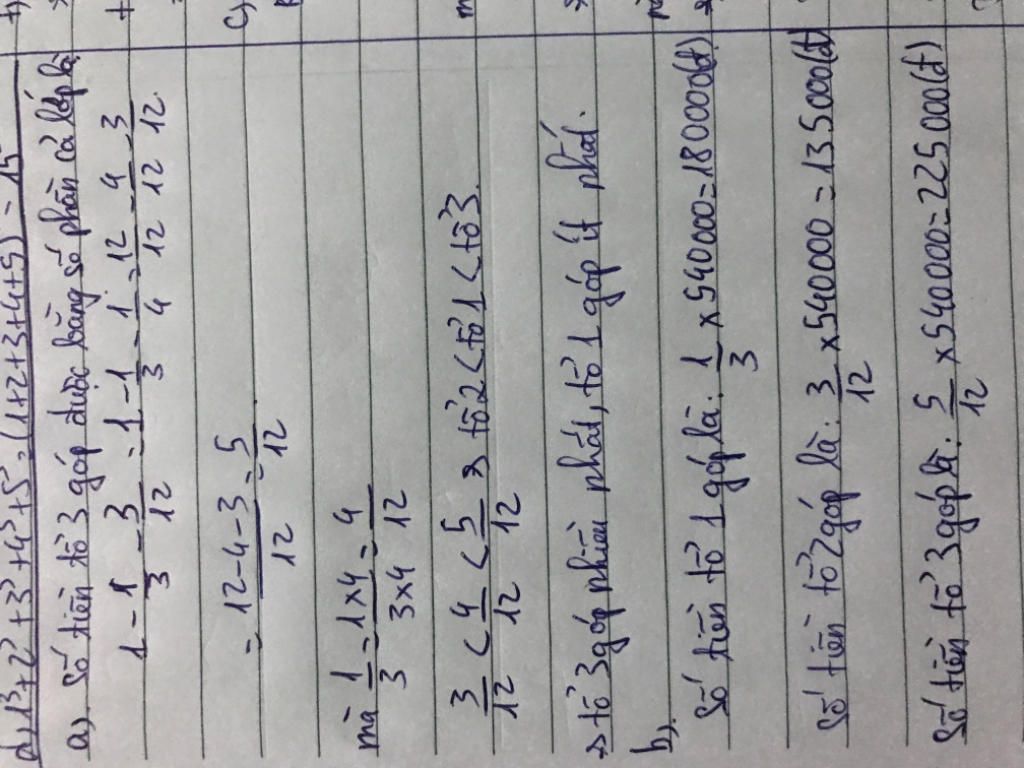 d) 1³+2²+3³+4³+5³=(1+2+3+4+5)=15
a), Số tiền tổ 3 góp được bằng số phần cả lớp là
1 - 1/3 - 3/12 = 1 - 1/3 - 1/4 = 12/12 - 4/12 - 3/12
= 12-4-3/12 = 5/12.
mà 1/3 = 1×4/3×4 = 4/12
3/12 < 4/12 < 5/12 → tổ 2 < tổ 1 < tổ 3.
→ tổ 3 góp nhiều nhất, tổ 1 góp ít nhất.
b),
Số tiền tổ 1 góp là: 1/3 × 540000 = 180000(đ)
Số tiền tổ 2 góp là: 3/12 × 540000 = 135000(đ)
Số tiền tổ 3 góp là: 5/12 × 540000 = 225000(đ)
c),